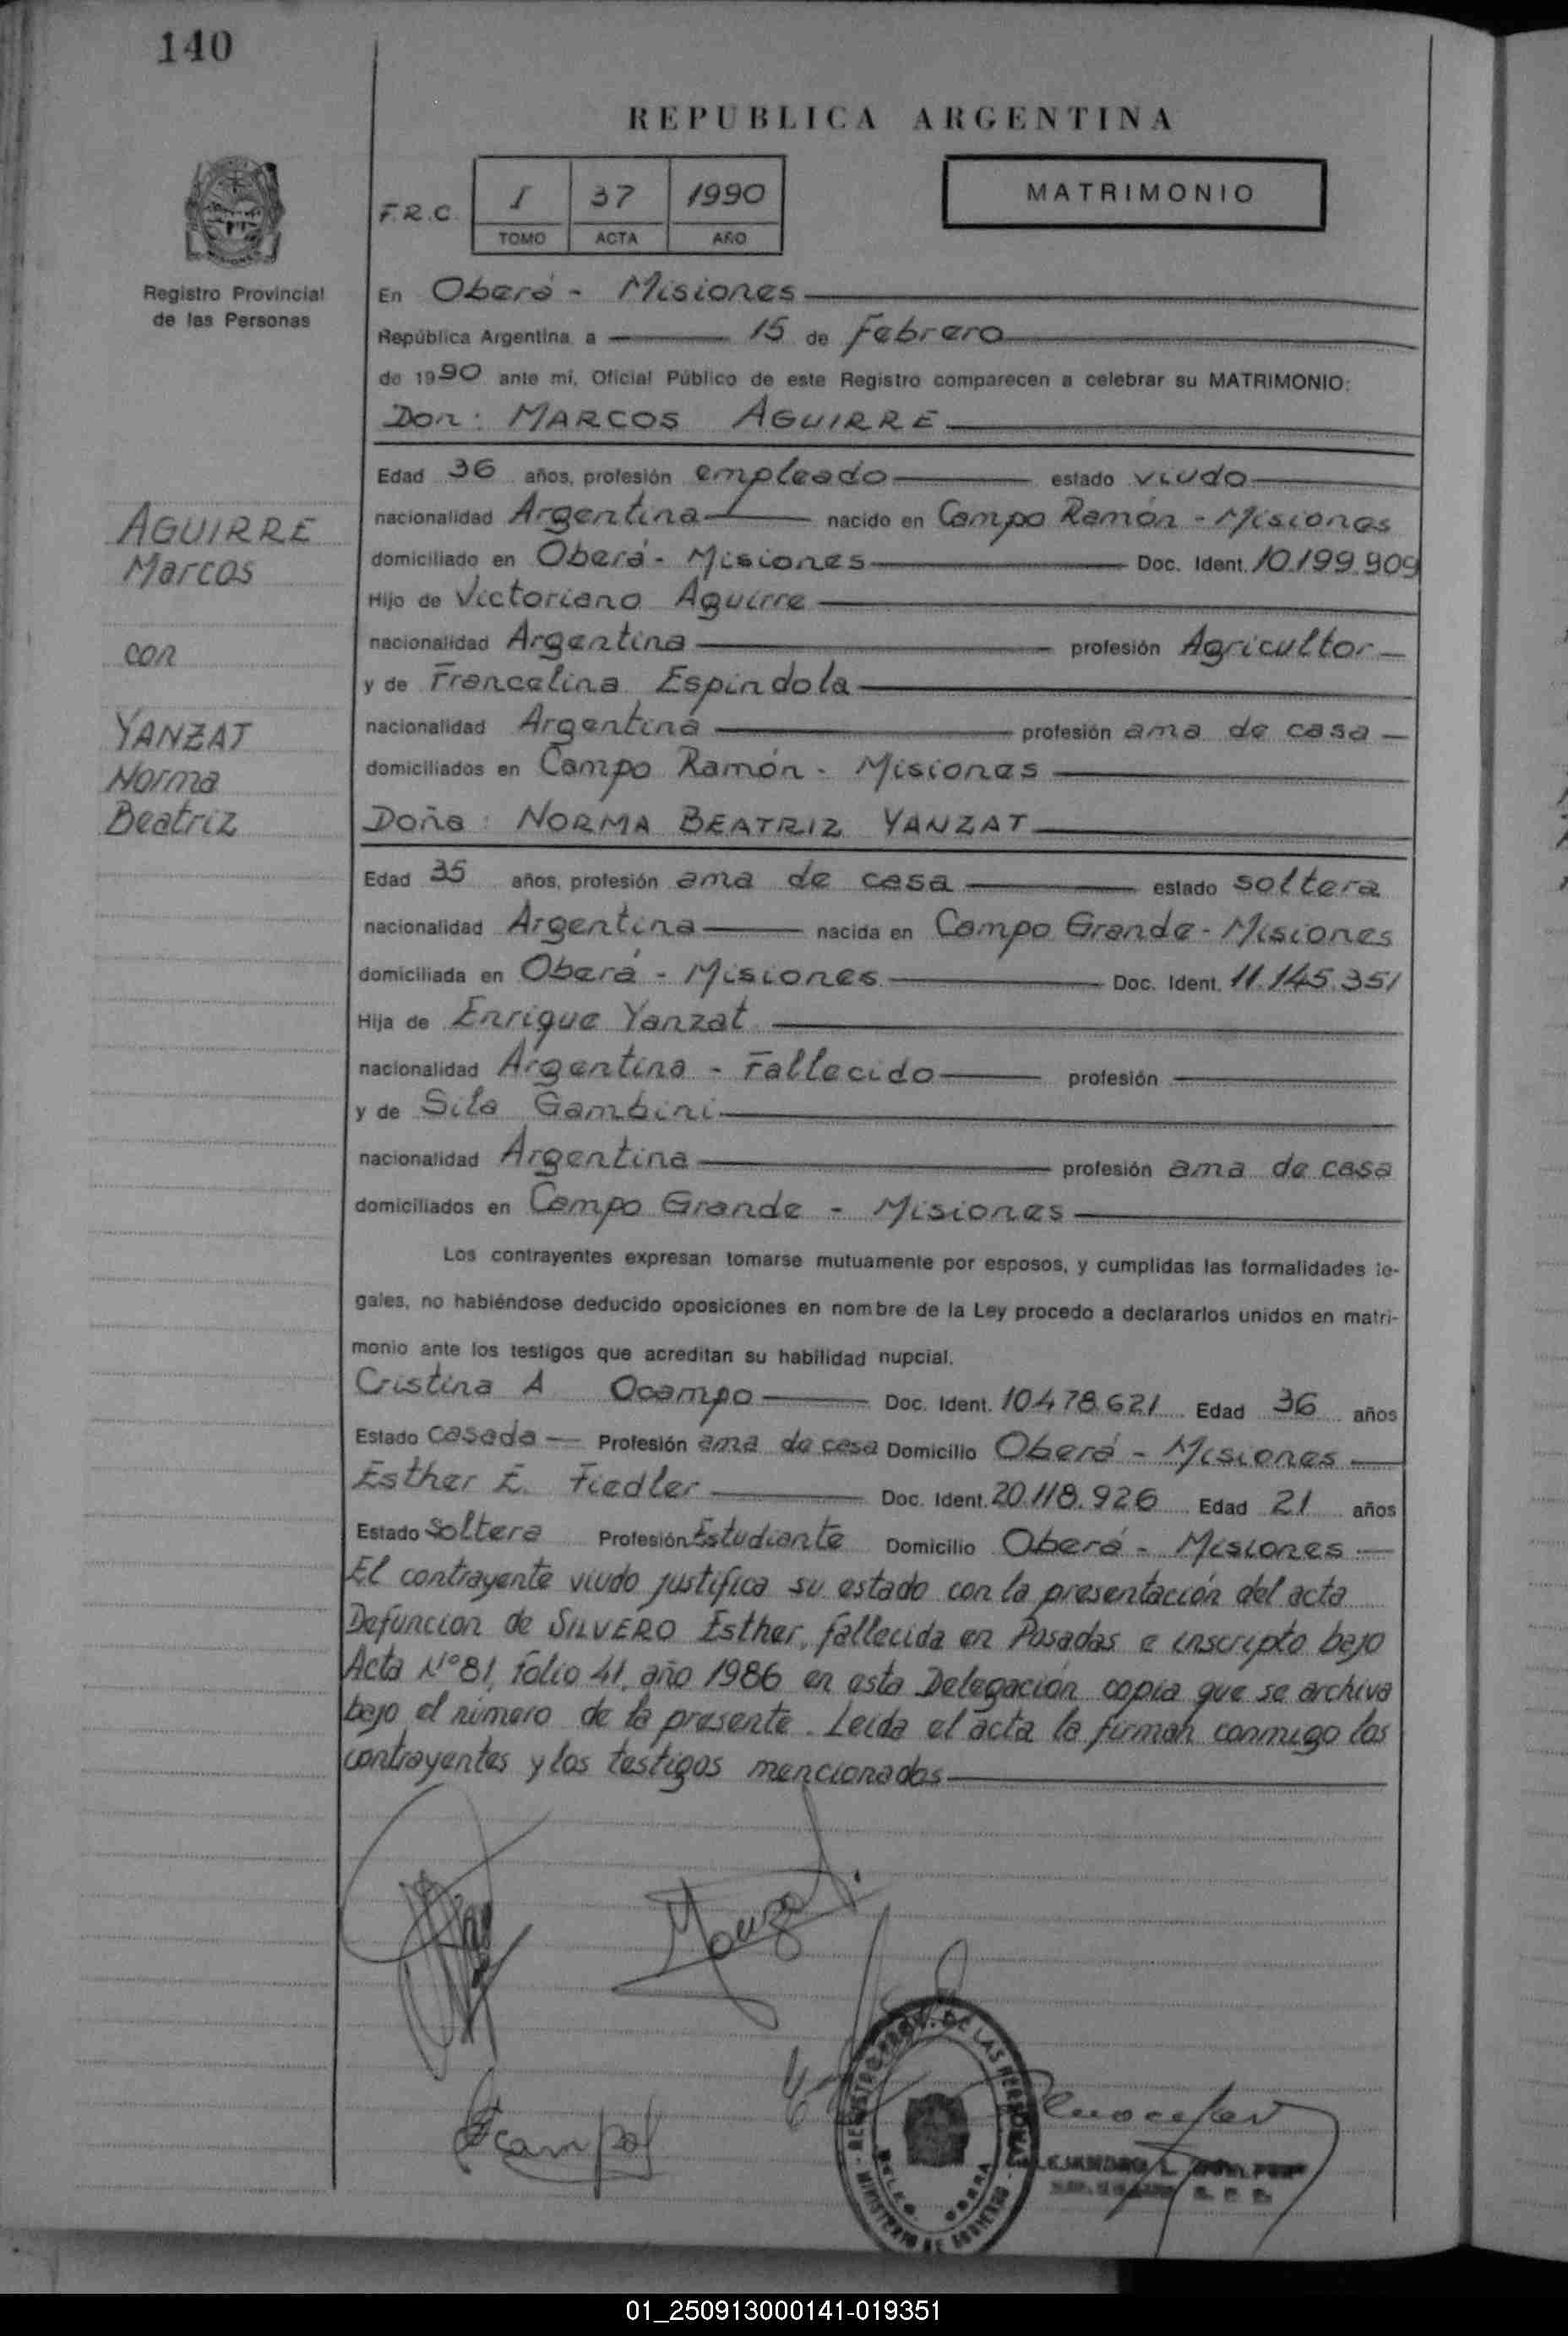 140
REPUBLICA ARGENTINA
MATRIMONIO
F.R.C. I 37 1990
TOMO ACTA AÑO
Registro Provincial
de las Personas
En Oberá - Misiones
República Argentina a 15 de Febrero
de 1990 ante mí, Oficial Público de este Registro comparecen a celebrar su MATRIMONIO:
Don: MARCOS AGUIRRE
Edad 36 años, profesión empleado estado viudo
nacionalidad Argentina nacido en Campo Ramón - Misiones
domiciliado en Oberá - Misiones Doc. Ident. 10.199.909
Hijo de Victoriano Aguirre
nacionalidad Argentina profesión Agricultor
y de Francelina Espindola
nacionalidad Argentina profesión ama de casa
domiciliados en Campo Ramón - Misiones
AGUIRRE
Marcos
con
YANZAT
Norma
Beatriz
Doña: NORMA BEATRIZ YANZAT
Edad 35 años, profesión ama de casa estado soltera
nacionalidad Argentina nacida en Campo Grande - Misiones
domiciliada en Oberá - Misiones Doc. Ident. 11.145.351
Hija de Enrique Yanzat
nacionalidad Argentina - Fallecido profesión
y de Sila Gambini
nacionalidad Argentina profesión ama de casa
domiciliados en Campo Grande - Misiones
Los contrayentes expresan tomarse mutuamente por esposos, y cumplidas las formalidades le-
gales, no habiéndose deducido oposiciones en nombre de la Ley procedo a declararlos unidos en matri-
monio ante los testigos que acreditan su habilidad nupcial.
Cristina A Ocampo Doc. Ident. 10.478.621 Edad 36 años
Estado casada Profesión ama de casa Domicilio Oberá - Misiones
Esther E. Fiedler Doc. Ident. 20.118.926 Edad 21 años
Estado Soltera Profesión Estudiante Domicilio Oberá - Misiones
El contrayente viudo justifica su estado con la presentación del acta
Defuncion de SILVERO Esther, fallecida en Posadas e inscripto bajo
Acta Nº 81, folio 41, año 1986 en esta Delegación copia que se archiva
bajo el número de la presente. Leida el acta la firman conmigo los
contrayentes y los testigos mencionados
Ocampo
REGISTRO PROV. DE LAS PERSONAS
MINISTERIO DE GOBIERNO
DELEG. OBERA
01_250913000141-019351